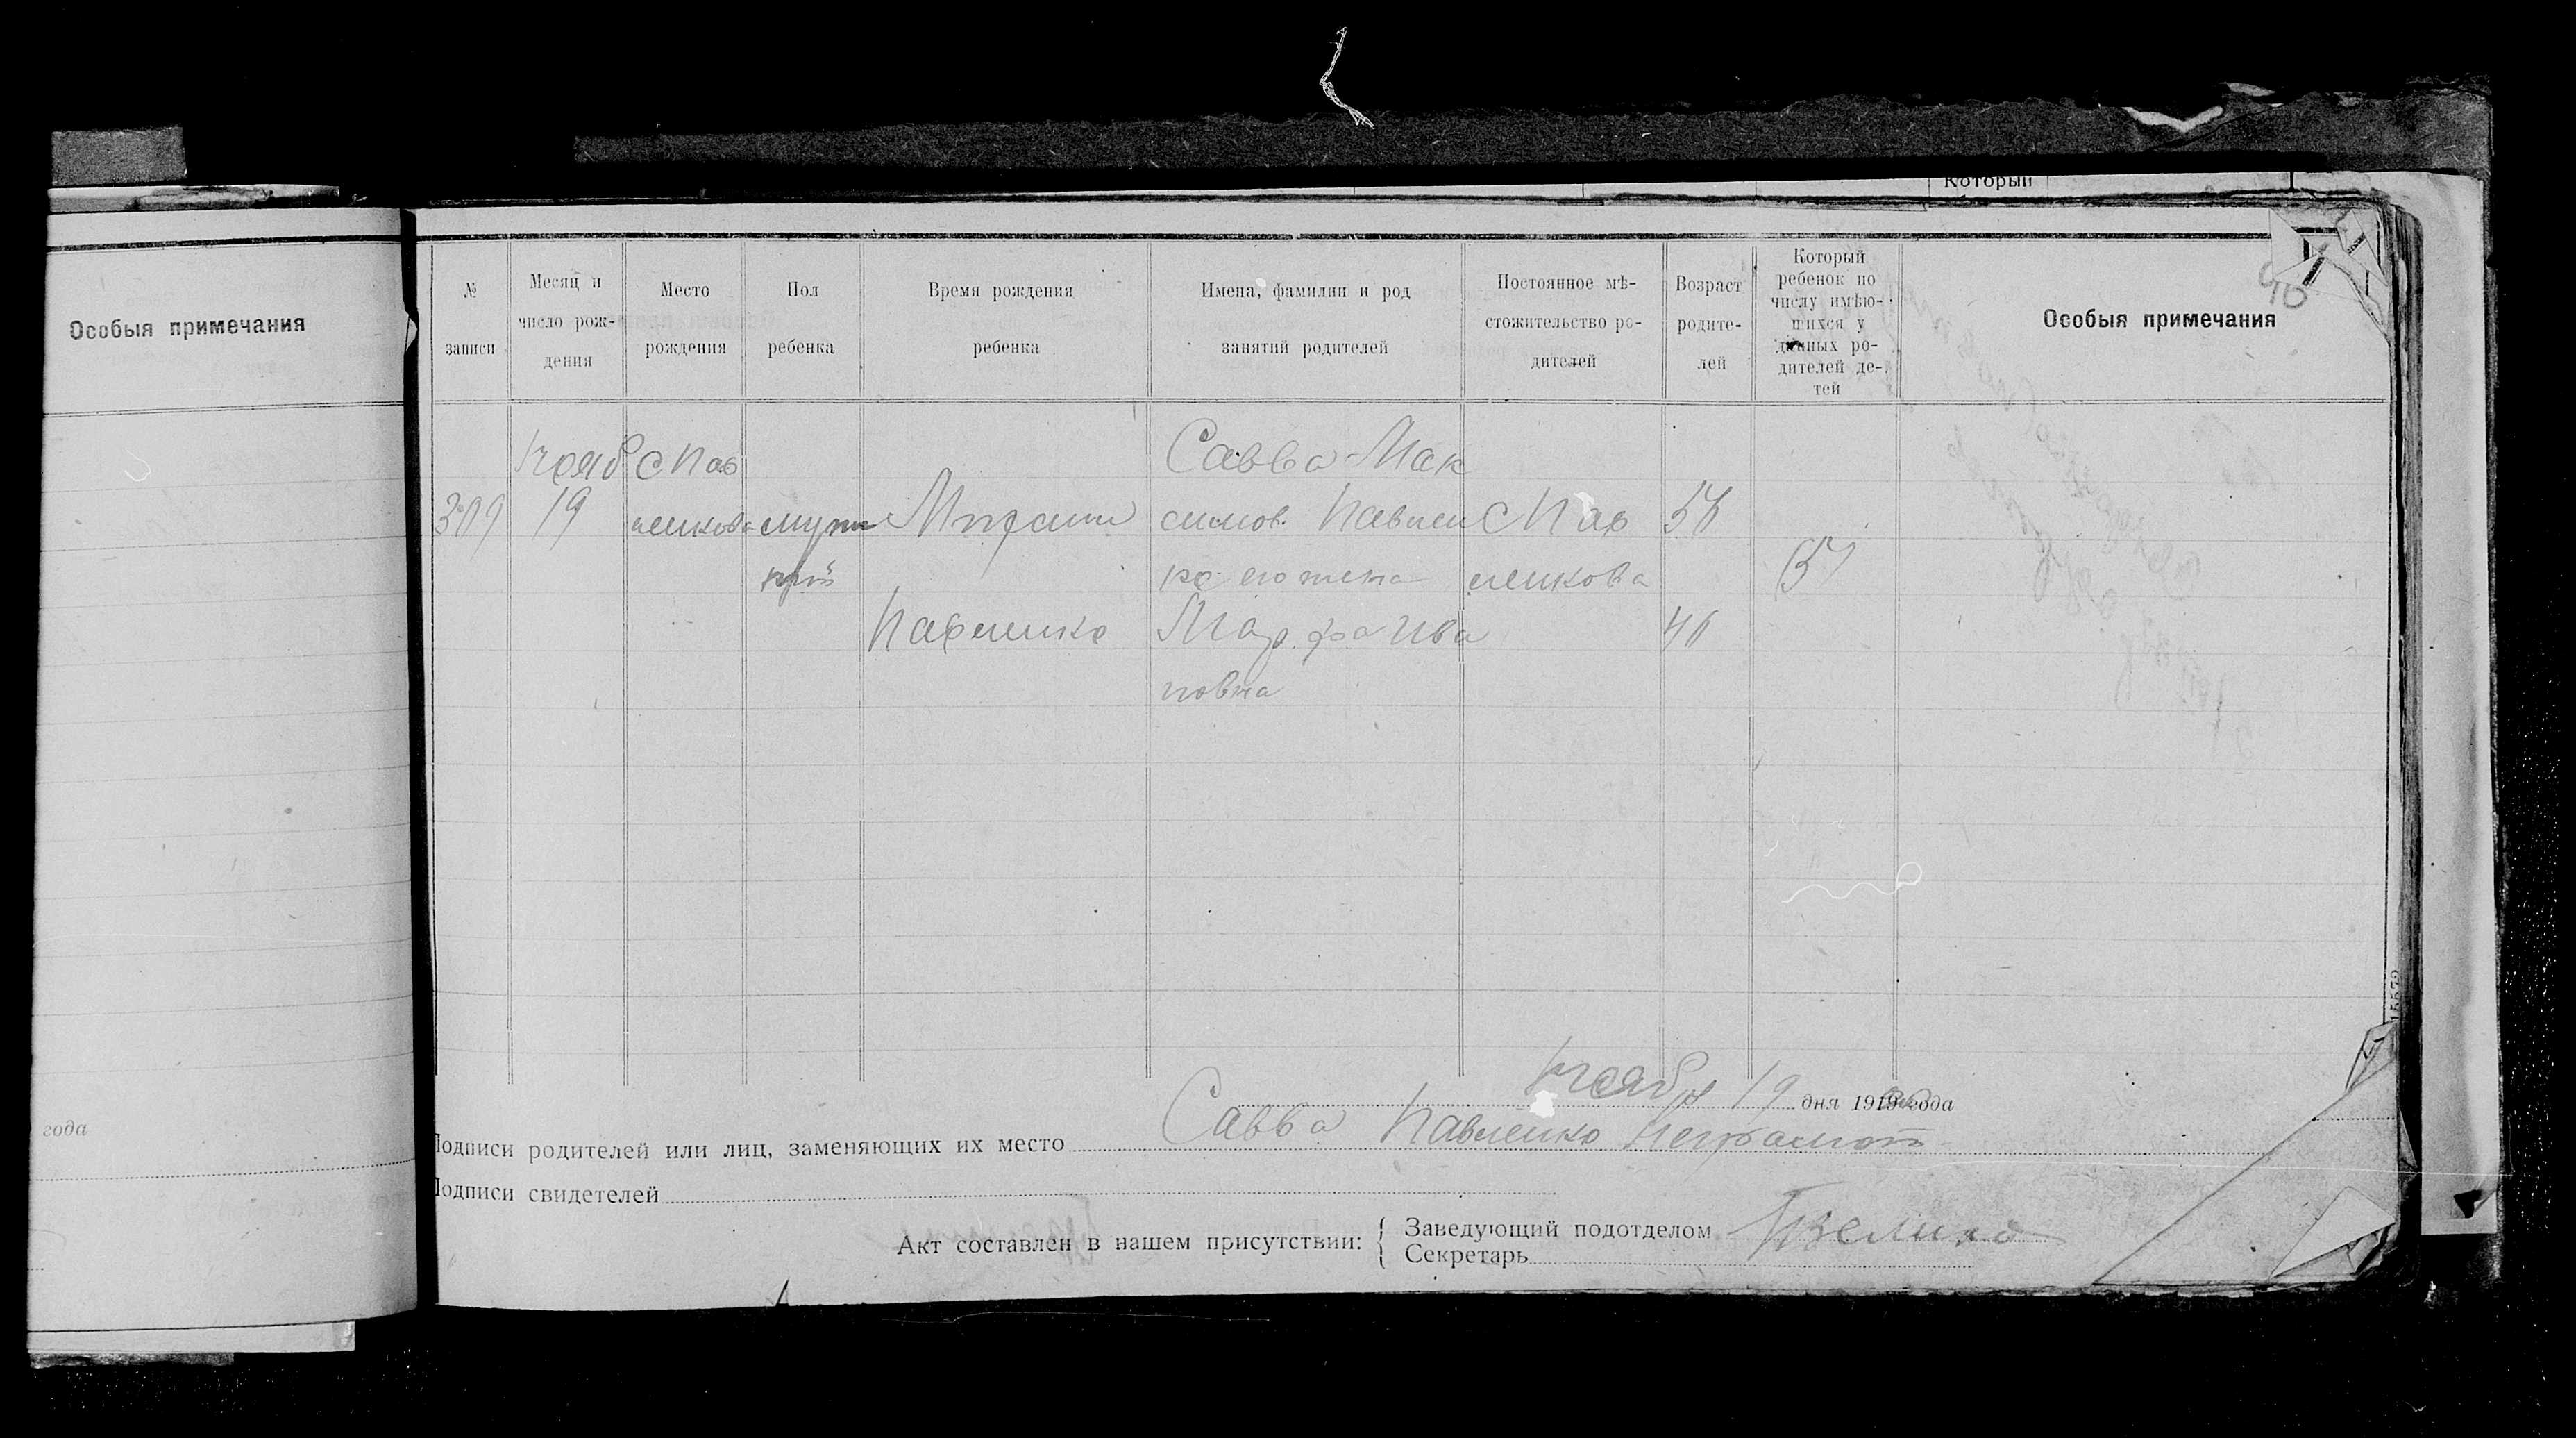 Который
Особыя примечания
года
№ записи
Месяц и число рождения
Место рождения
Пол ребенка
Время рождения ребенка
Имена, фамилии и род занятий родителей
Постоянное мѣстожительство родителей
Возраст родителей
Который ребенок по числу имѣющихся у данных родителей детей
Особыя примечания
309
Нояб
19
с Пав
ленкова
муж
ской
Павленко
Савва Мак
симов. Павлен
ко его жена
Марфа Ива
новна
с Пав
ленкова
46
Нояб 19 дня 19 года
Подписи родителей или лиц, заменяющих их место Савва Павленко неграмот
Подписи свидетелей
Акт составлен в нашем присутствии:
Заведующий подотделом
Секретарь